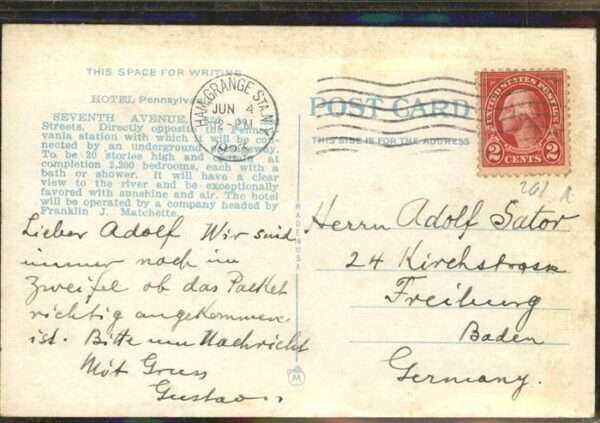 THIS SPACE FOR WRITING
HOTEL Pennsylvan
SEVENTH AVENUE,
Streets. Directly opposite the Pennsyl-
vania station with which it will be con-
nected by an underground
To be 20 stories high and contain at
completion 2,200 bedrooms, each with a
bath or shower. It will have a clear
view to the river and be exceptionally
favored with sunshine and air. The hotel
will be operated by a company headed by
Franklin J. Matchette.
HAM. GRANGE STA. N.Y.
JUN 4
PM
POST CARD
THIS SIDE IS FOR THE ADDRESS
UNITED STATES POSTAGE
2 CENTS 2
MADE IN USA
Lieber Adolf Wir sind
immer noch im
Zweifel ob das Packet
richtig angekommen
ist. Bitte um Nachricht
Mit Gruss
Gustav
Herrn Adolf Sator
24 Kirchstrasse
Freiburg
Baden
Germany.
M